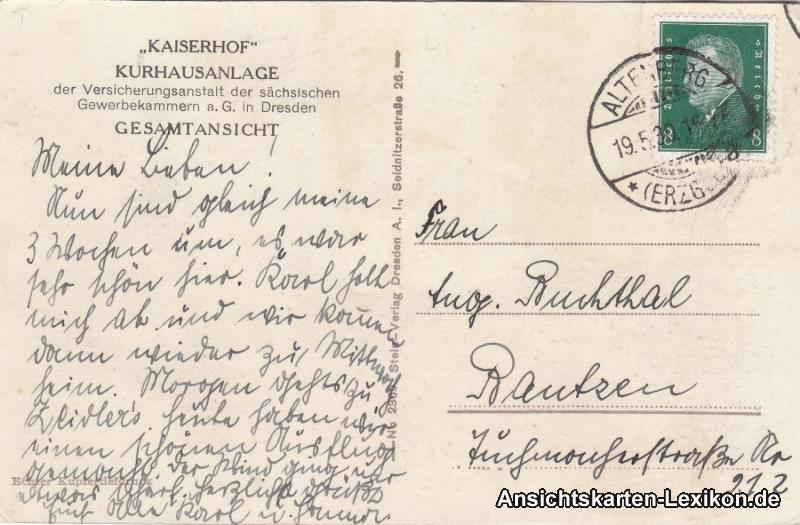 „KAISERHOF“
KURHAUSANLAGE
der Versicherungsanstalt der sächsischen
Gewerbekammern a. G. in Dresden
GESAMTANSICHT
Meine Lieben!
Nun sind gleich meine
3 Wochen um, es war
sehr schön hier. Karl holt
mich ab und wir kommen
dann wieder zu Mittwoch
heim. Morgen gehts zu
Zeidlers heute haben wir
einen schönen Ausflug
gemacht der Wind ging
etwas scharf, herzlich grüßt
Euch Alle Karl u.
Echter Kupfertiefdruck
Verlag Dresden A. 1., Seidnitzerstraße 26.
Deutsches Reich
8 8
ALTENBERG
19.5.30.
* (ERZG
Frau
Aug. Buchthal
Bautzen
Tuchmacherstraße Nr
212
Ansichtskarten-Lexikon.de